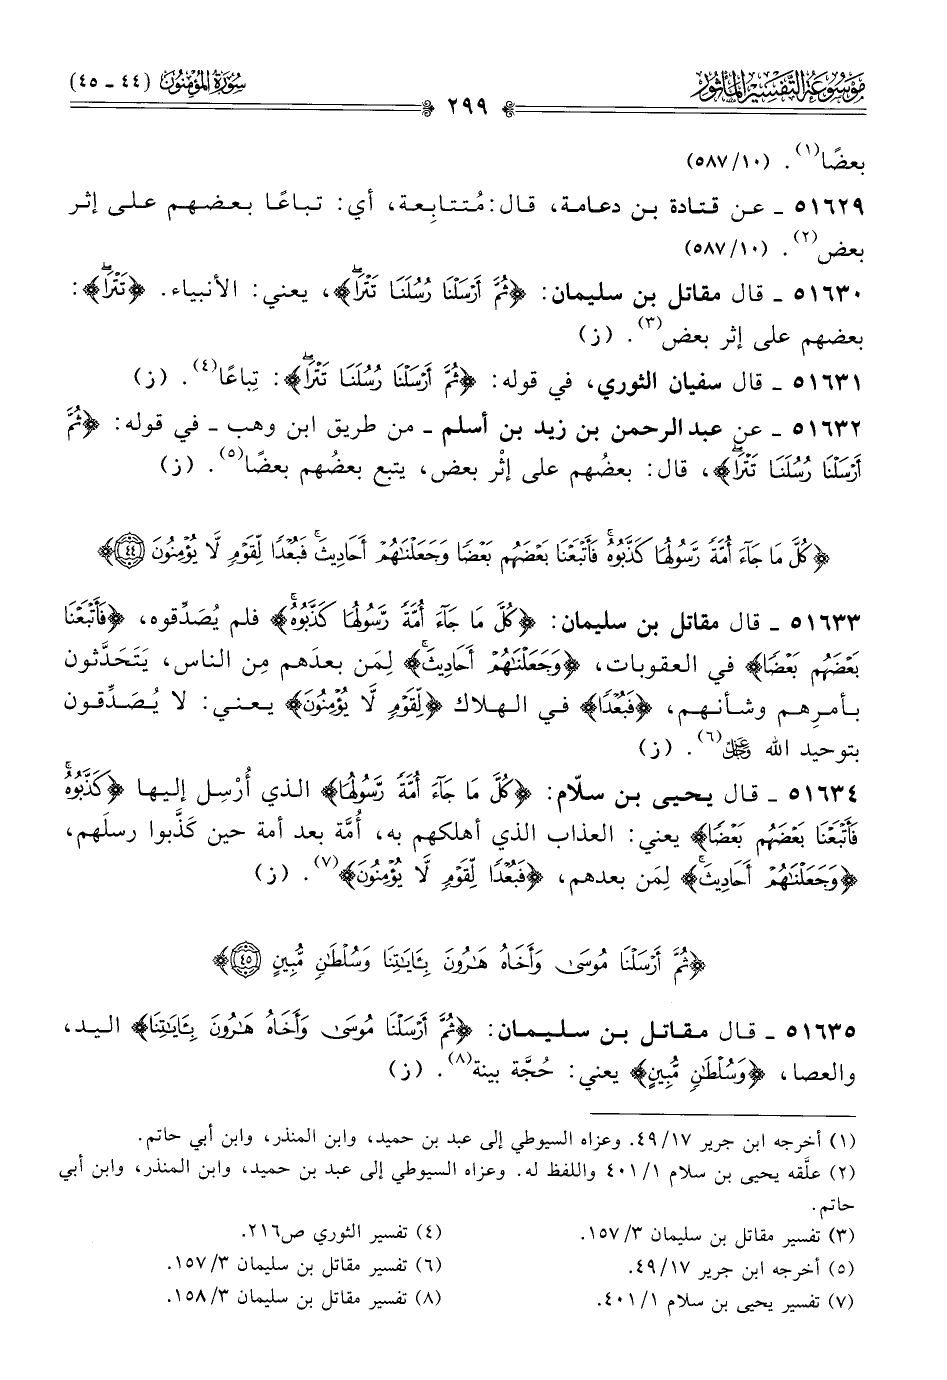 موسوعة التفسير المأثور
سورة المؤمنون (٤٤ - ٤٥)
٢٩٩
بعضًا(١). (١٠/ ٥٨٧)
٥١٦٢٩ - عن قتادة بن دعامة، قال: مُتتابِعة، أي: تباعًا بعضهم على إثر
بعض(٢). (١٠/ ٥٨٧)
٥١٦٣٠ - قال مقاتل بن سليمان: ﴿ثُمَّ أَرْسَلْنَا رُسُلَنَا تَتْرَا﴾، يعني: الأنبياء. ﴿تَتْرَا﴾:
بعضهم على إثر بعض(٣). (ز)
٥١٦٣١ - قال سفيان الثوري، في قوله: ﴿ثُمَّ أَرْسَلْنَا رُسُلَنَا تَتْرَا﴾: تِباعًا(٤). (ز)
٥١٦٣٢ - عن عبد الرحمن بن زيد بن أسلم - من طريق ابن وهب - في قوله: ﴿ثُمَّ
أَرْسَلْنَا رُسُلَنَا تَتْرَا﴾، قال: بعضُهم على إثْر بعض، يتبع بعضُهم بعضًا(٥). (ز)
﴿كُلَّ مَا جَآءَ أُمَّةً رَّسُولُهَا كَذَّبُوهُ ۚ فَأَتْبَعْنَا بَعْضَهُم بَعْضًا وَجَعَلْنَٰهُمْ أَحَادِيثَ ۚ فَبُعْدًا لِّقَوْمٍ لَّا يُؤْمِنُونَ ٤٤﴾
٥١٦٣٣ - قال مقاتل بن سليمان: ﴿كُلَّ مَا جَآءَ أُمَّةً رَّسُولُهَا كَذَّبُوهُ ۚ﴾ فلم يُصَدِّقوه، ﴿فَأَتْبَعْنَا
بَعْضَهُم بَعْضًا﴾ في العقوبات، ﴿وَجَعَلْنَٰهُمْ أَحَادِيثَ ۚ﴾ لِمَن بعدَهم مِن الناس، يَتَحَدَّثون
بأمرِهم وشأنهم، ﴿فَبُعْدًا﴾ في الهلاك ﴿لِّقَوْمٍ لَّا يُؤْمِنُونَ﴾ يعني: لا يُصَدِّقون
بتوحيد الله عز وجل(٦). (ز)
٥١٦٣٤ - قال يحيى بن سلّام: ﴿كُلَّ مَا جَآءَ أُمَّةً رَّسُولُهَا﴾ الذي أُرْسِل إليها ﴿كَذَّبُوهُ ۚ
فَأَتْبَعْنَا بَعْضَهُم بَعْضًا﴾ يعني: العذاب الذي أهلكهم به، أُمَّة بعد أمة حين كَذَّبوا رسلَهم،
﴿وَجَعَلْنَٰهُمْ أَحَادِيثَ ۚ﴾ لِمَن بعدهم، ﴿فَبُعْدًا لِّقَوْمٍ لَّا يُؤْمِنُونَ﴾(٧). (ز)
﴿ثُمَّ أَرْسَلْنَا مُوسَىٰ وَأَخَاهُ هَٰرُونَ بِـَٔايَٰتِنَا وَسُلْطَٰنٍ مُّبِينٍ ٤٥﴾
٥١٦٣٥ - قال مقاتل بن سليمان: ﴿ثُمَّ أَرْسَلْنَا مُوسَىٰ وَأَخَاهُ هَٰرُونَ بِـَٔايَٰتِنَا﴾ اليد،
والعصا، ﴿وَسُلْطَٰنٍ مُّبِينٍ﴾ يعني: حُجَّة بينة(٨). (ز)
(١) أخرجه ابن جرير ١٧/ ٤٩. وعزاه السيوطي إلى عبد بن حميد، وابن المنذر، وابن أبي حاتم.
(٢) علَّقه يحيى بن سلام ١/ ٤٠١ واللفظ له. وعزاه السيوطي إلى عبد بن حميد، وابن المنذر، وابن أبي
حاتم.
(٣) تفسير مقاتل بن سليمان ٣/ ١٥٧.
(٤) تفسير الثوري ص٢١٦.
(٥) أخرجه ابن جرير ١٧/ ٤٩.
(٦) تفسير مقاتل بن سليمان ٣/ ١٥٧.
(٧) تفسير يحيى بن سلام ١/ ٤٠١.
(٨) تفسير مقاتل بن سليمان ٣/ ١٥٨.